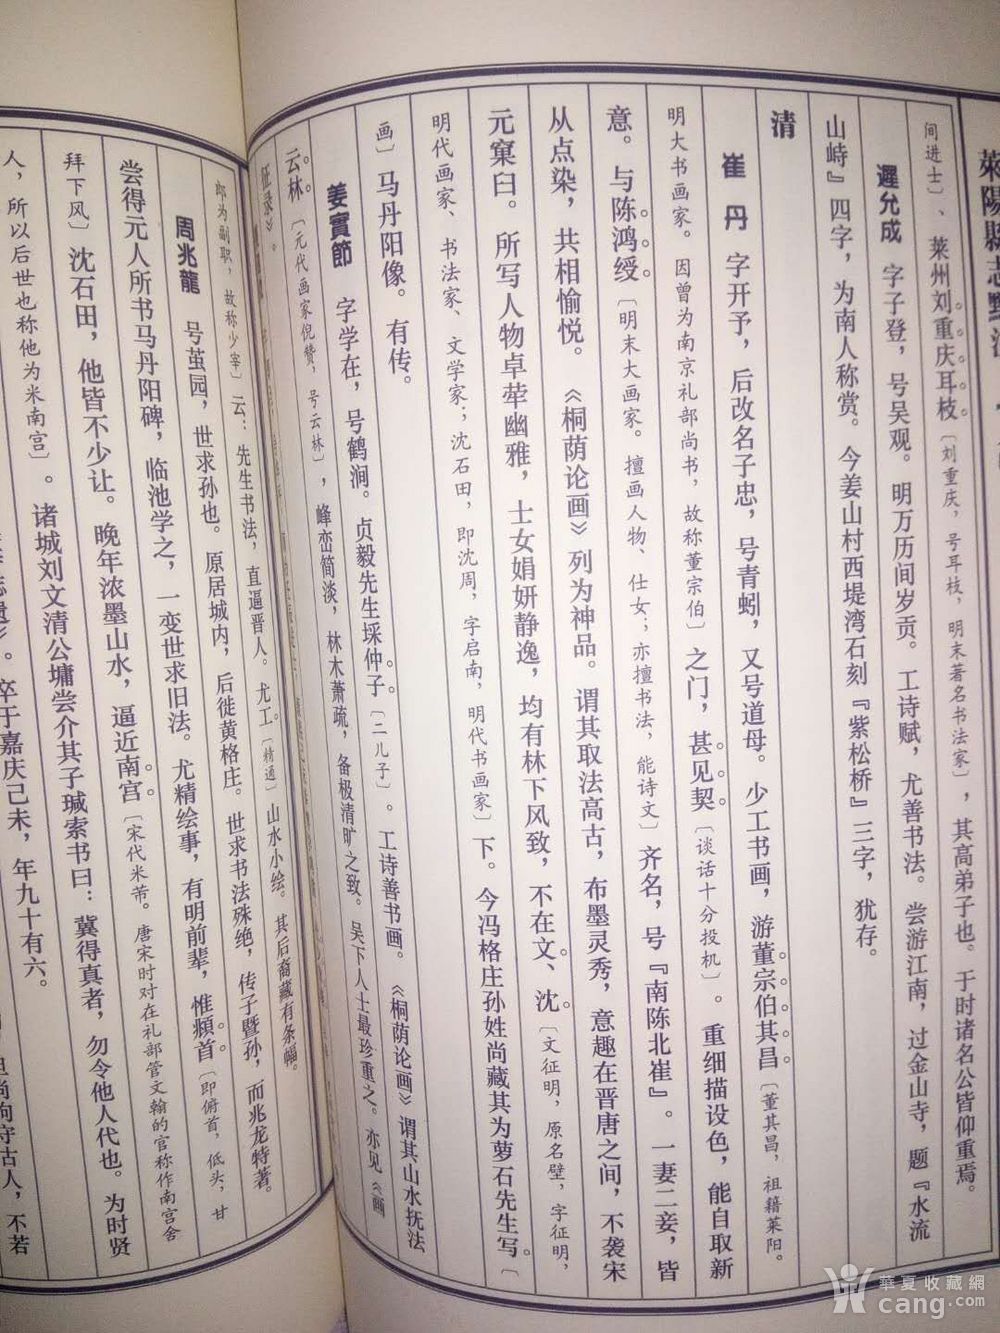 萊陽縣志
间进士〕、莱州刘重庆耳枝。〔刘重庆，号耳枝，明末著名书法家〕，其高弟子也。于时诸名公皆仰重焉。
遲允成 字子登，号吴观。明万历间岁贡。工诗赋，尤善书法。尝游江南，过金山寺，题『水流
山峙』四字，为南人称赏。今姜山村西堤湾石刻『紫松桥』三字，犹存。
清
崔丹 字开予，后改名子忠，号青蚓，又号道母。少工书画，游董宗伯其昌。〔董其昌，祖籍莱阳。
明大书画家。因曾为南京礼部尚书，故称董宗伯〕之门，甚见契。〔谈话十分投机〕。重细描设色，能自取新
意。与陈鸿绶。〔明末大画家。擅画人物、仕女；亦擅书法，能诗文〕齐名，号『南陈北崔』。一妻二妾，皆
从点染，共相愉悦。《桐荫论画》列为神品。谓其取法高古，布墨灵秀，意趣在晋唐之间，不袭宋
元窠臼。所写人物卓荦幽雅，士女娟妍静逸，均有林下风致，不在文、沈。〔文征明，原名壁，字征明，
明代画家、书法家、文学家；沈石田，即沈周，字启南，明代书画家〕下。今冯格庄孙姓尚藏其为萝石先生写。〔
画〕马丹阳像。有传。
姜實節 字学在，号鹤涧。贞毅先生埰仲子。〔二儿子〕。工诗善书画。《桐荫论画》谓其山水抚法
云林。〔元代画家倪赞，号云林〕，峰峦简淡，林木萧疏，备极清旷之致。吴下人士最珍重之。亦见《画
征录》。
郎为副职，故称少宰〕云：先生书法，直逼晋人。尤工。〔精通〕山水小绘。其后裔藏有条幅。
周兆龍 号茧园，世求孙也。原居城内，后徙黄格庄。世求书法殊绝，传子暨孙，而兆龙特著。
尝得元人所书马丹阳碑，临池学之，一变世求旧法。尤精绘事，有明前辈，惟頫首。〔即俯首，低头，甘
拜下风〕沈石田，他皆不少让。晚年浓墨山水，逼近南宫。〔宋代米芾。唐宋时对在礼部管文翰的官称作南宫舍
人，所以后世也称他为米南宫〕。诸城刘文清公墉尝介其子瑊索书曰：冀得真者，勿令他人代也。为时贤
卒于嘉庆己未，年九十有六。
尚拘守古人，不若
華夏收藏網
cang.com